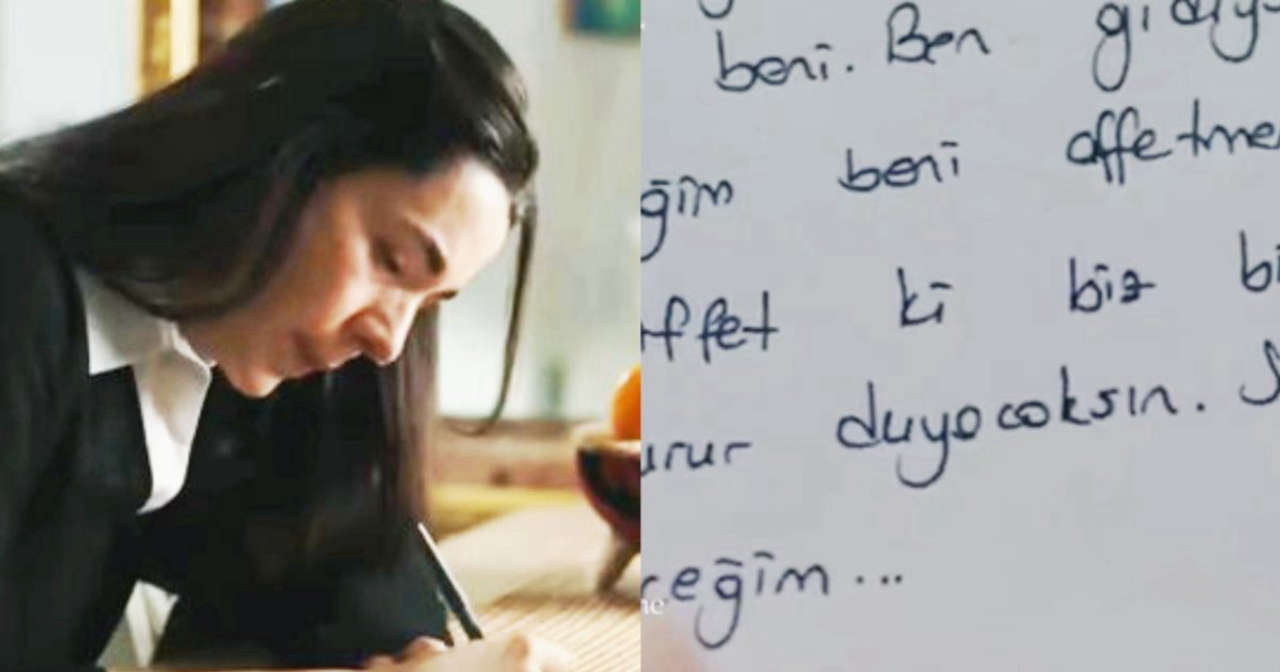 beni. Ben
ğim beni affetme
ffet ki biz bi
urur duyacaksın.
ceğim...